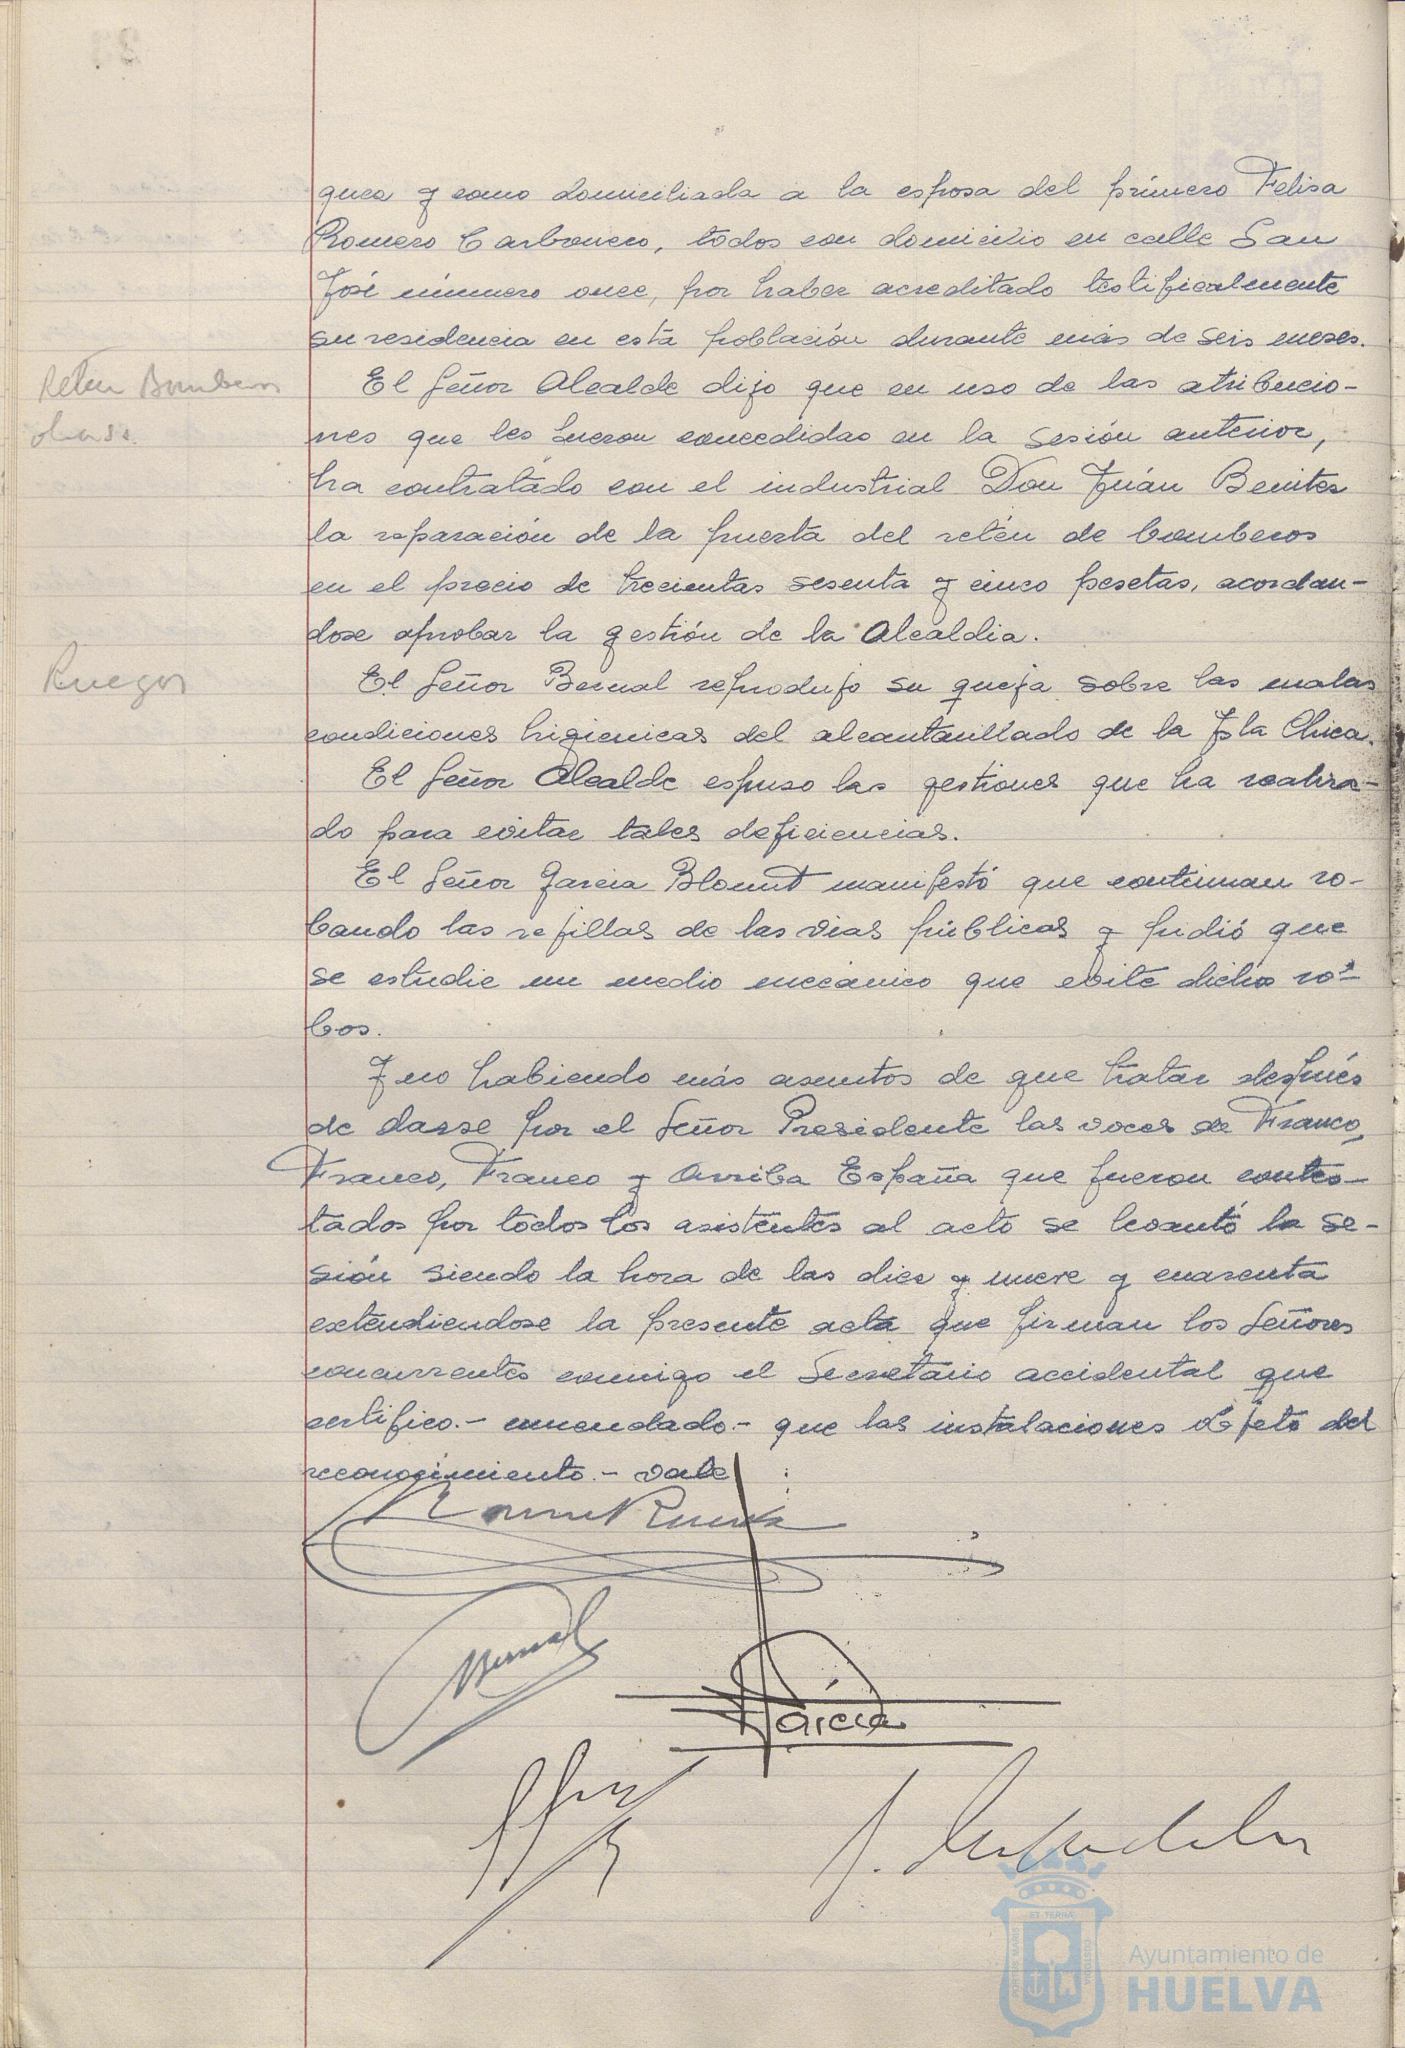 quez y como domiciliada a la esposa del primero Felisa
Romero Carbonero, todos con domicilio en calle San
José número once, por haber acreditado testificalmente
su residencia en esta población durante más de seis meses.
Reten Bomberos
obras.
El Señor Alcalde dijo que en uso de las atribucio-
nes que les fueron concedidas en la sesión anterior,
ha contratado con el industrial Don Juán Benitez
la reparación de la puerta del retén de bomberos
en el precio de trecientas sesenta y cinco pesetas, acordan-
dose aprobar la gestión de la Alcaldia.
Ruegos
El Señor Bernal reprodujo su queja sobre las malas
condiciones higienicas del alcantarillado de la Isla Chica.
El Señor Alcalde espuso las gestiones que ha realiza-
do para evitar tales deficiencias.
El Señor Garcia Blount manifestó que continuan ro-
bando las rejillas de las vias públicas y pidió que
se estudie un medio mecánico que evite dichos ro-
bos.
Y no habiendo más asuntos de que tratar después
de darse por el Señor Presidente las voces de Franco,
Franco, Franco y Arriba España que fueron contes-
tados por todos los asistentes al acto se levantó la se-
sión siendo la hora de las diez y nueve y cuarenta
extendiendose la presente acta que firman los Señores
concurrentes conmigo el Secretario accidental que
certifico.- enmendado.- que las instalaciones objeto del
reconocimiento.- vale
Bernal
Garcia
ET TERRAE
PORTUS MARIS
CUSTODIA
Ayuntamiento de
HUELVA